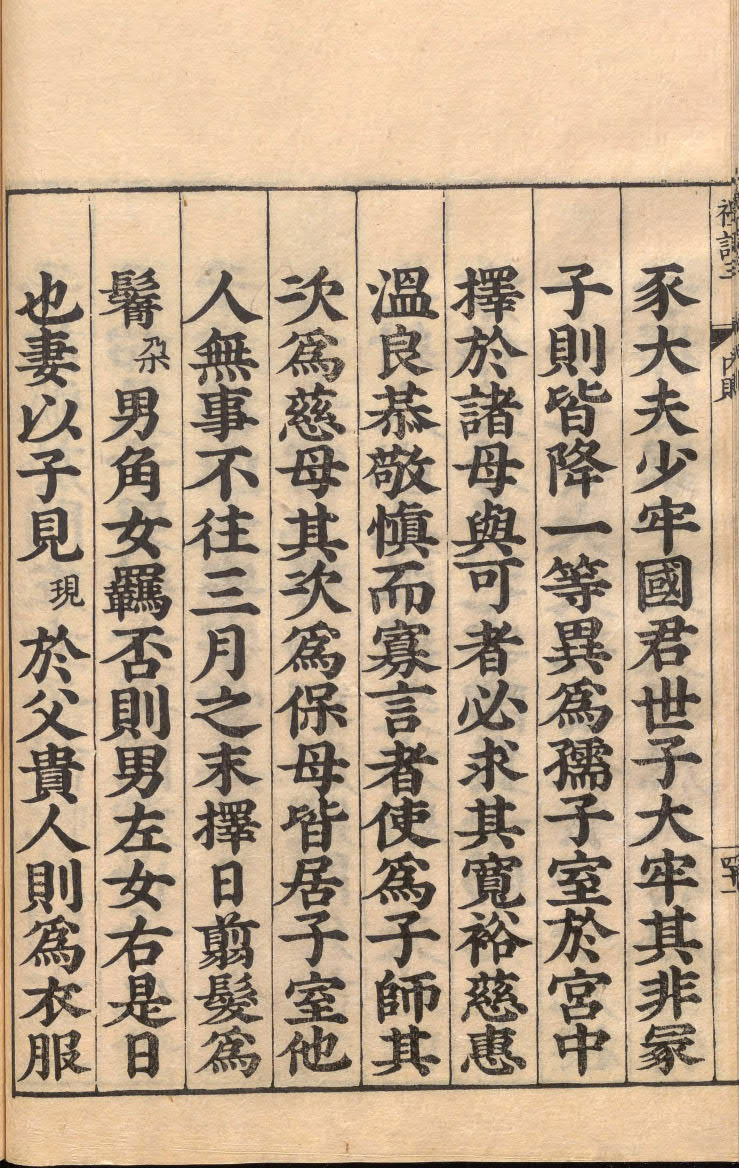 內則
豕大夫少牢國君世子大牢其非冢
子則皆降一等異爲孺子室於宮中
擇於諸母與可者必求其寬裕慈惠
溫良恭敬慎而寡言者使爲子師其
次爲慈母其次爲保母皆居子室他
人無事不往三月之末擇日翦髮爲
鬌朶男角女羈否則男左女右是日
也妻以子見現於父貴人則爲衣服